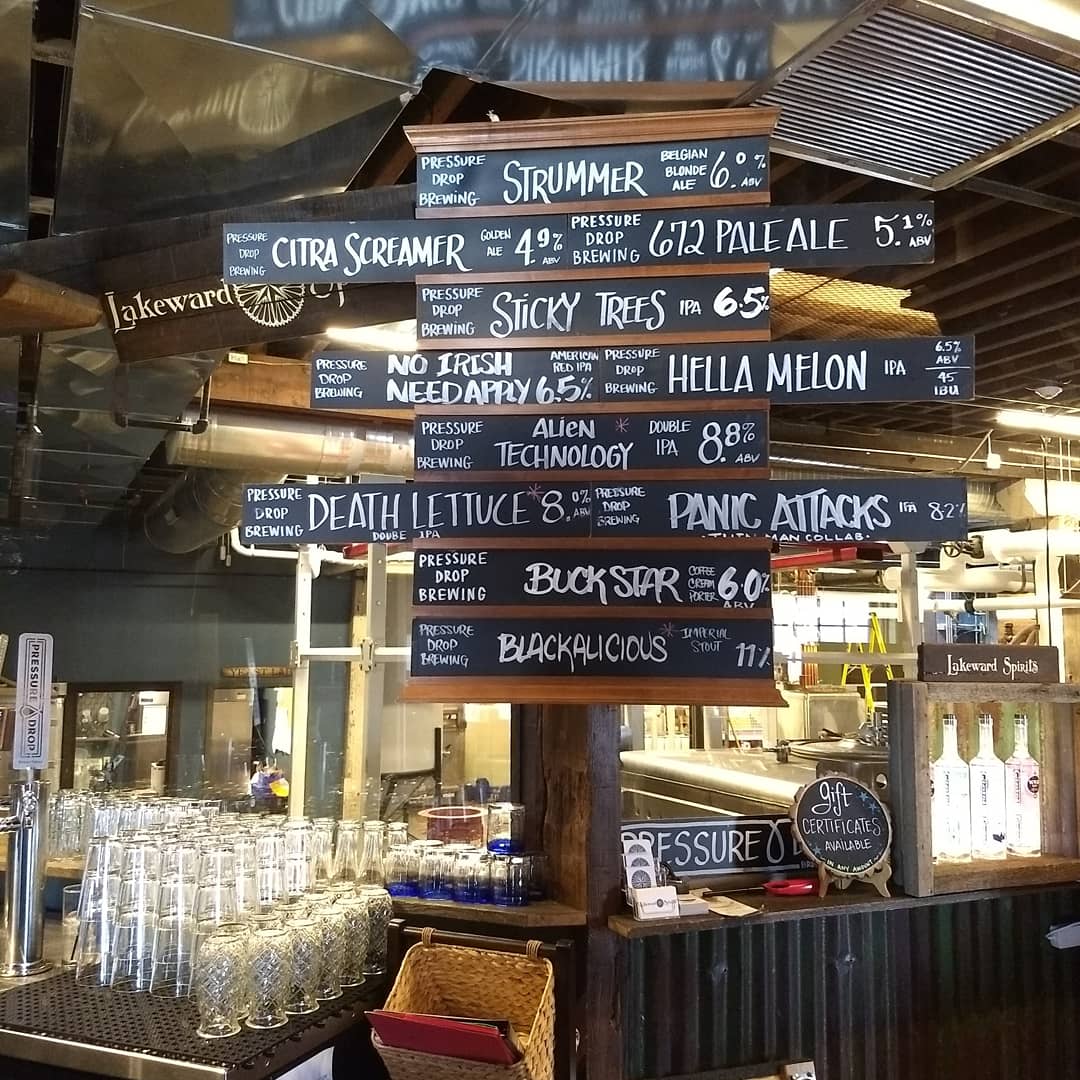 PRESSURE DROP BREWING STRUMMER BELGIAN BLONDE ALE 6.0% ABV
PRESSURE DROP BREWING CITRA SCREAMER GOLDEN ALE 4.9% ABV
PRESSURE DROP BREWING 672 PALE ALE 5.1% ABV
Lakeward
PRESSURE DROP BREWING STICKY TREES IPA 6.5%
PRESSURE DROP BREWING NO IRISH NEED APPLY AMERICAN RED IPA 6.5%
PRESSURE DROP BREWING HELLA MELON IPA 6.5% ABV 45 IBU
PRESSURE DROP BREWING ALIEN TECHNOLOGY * DOUBLE IPA 8.8% ABV
PRESSURE DROP BREWING DEATH LETTUCE * 8.0% ABV
DOUBE IPA
PRESSURE DROP BREWING PANIC ATTACKS IPA 8.2%
THIN MAN COLLAB
PRESSURE DROP BREWING BUCK STAR COFFEE CREAM PORTER 6.0% ABV
PRESSURE DROP BREWING BLACKALICIOUS * IMPERIAL STOUT 11%
PRESSURE DROP
Lakeward Spirits
gift
CERTIFICATES
AVAILABLE
IN ANY AMOUNT
PRESSURE